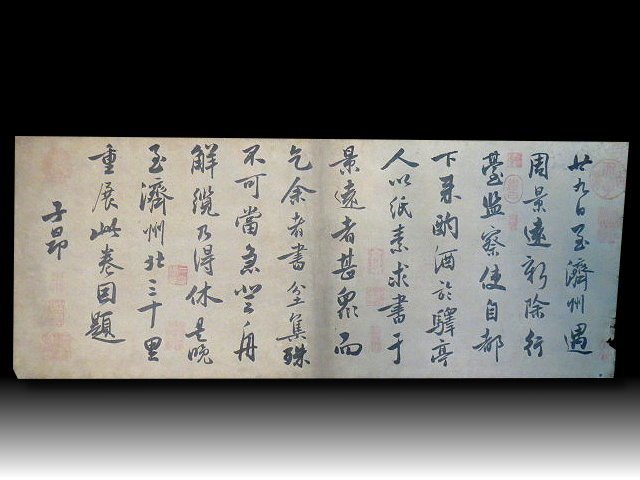 廿九日至濟州遇
周景遠新除行
臺監察使自都
下來酌酒於驛亭
人以紙素求書于
景遠者甚衆而
乞余者書坌集殊
不可當急登舟
解纜乃得休是晚
至濟州北三十里
重展此卷因題
子昂